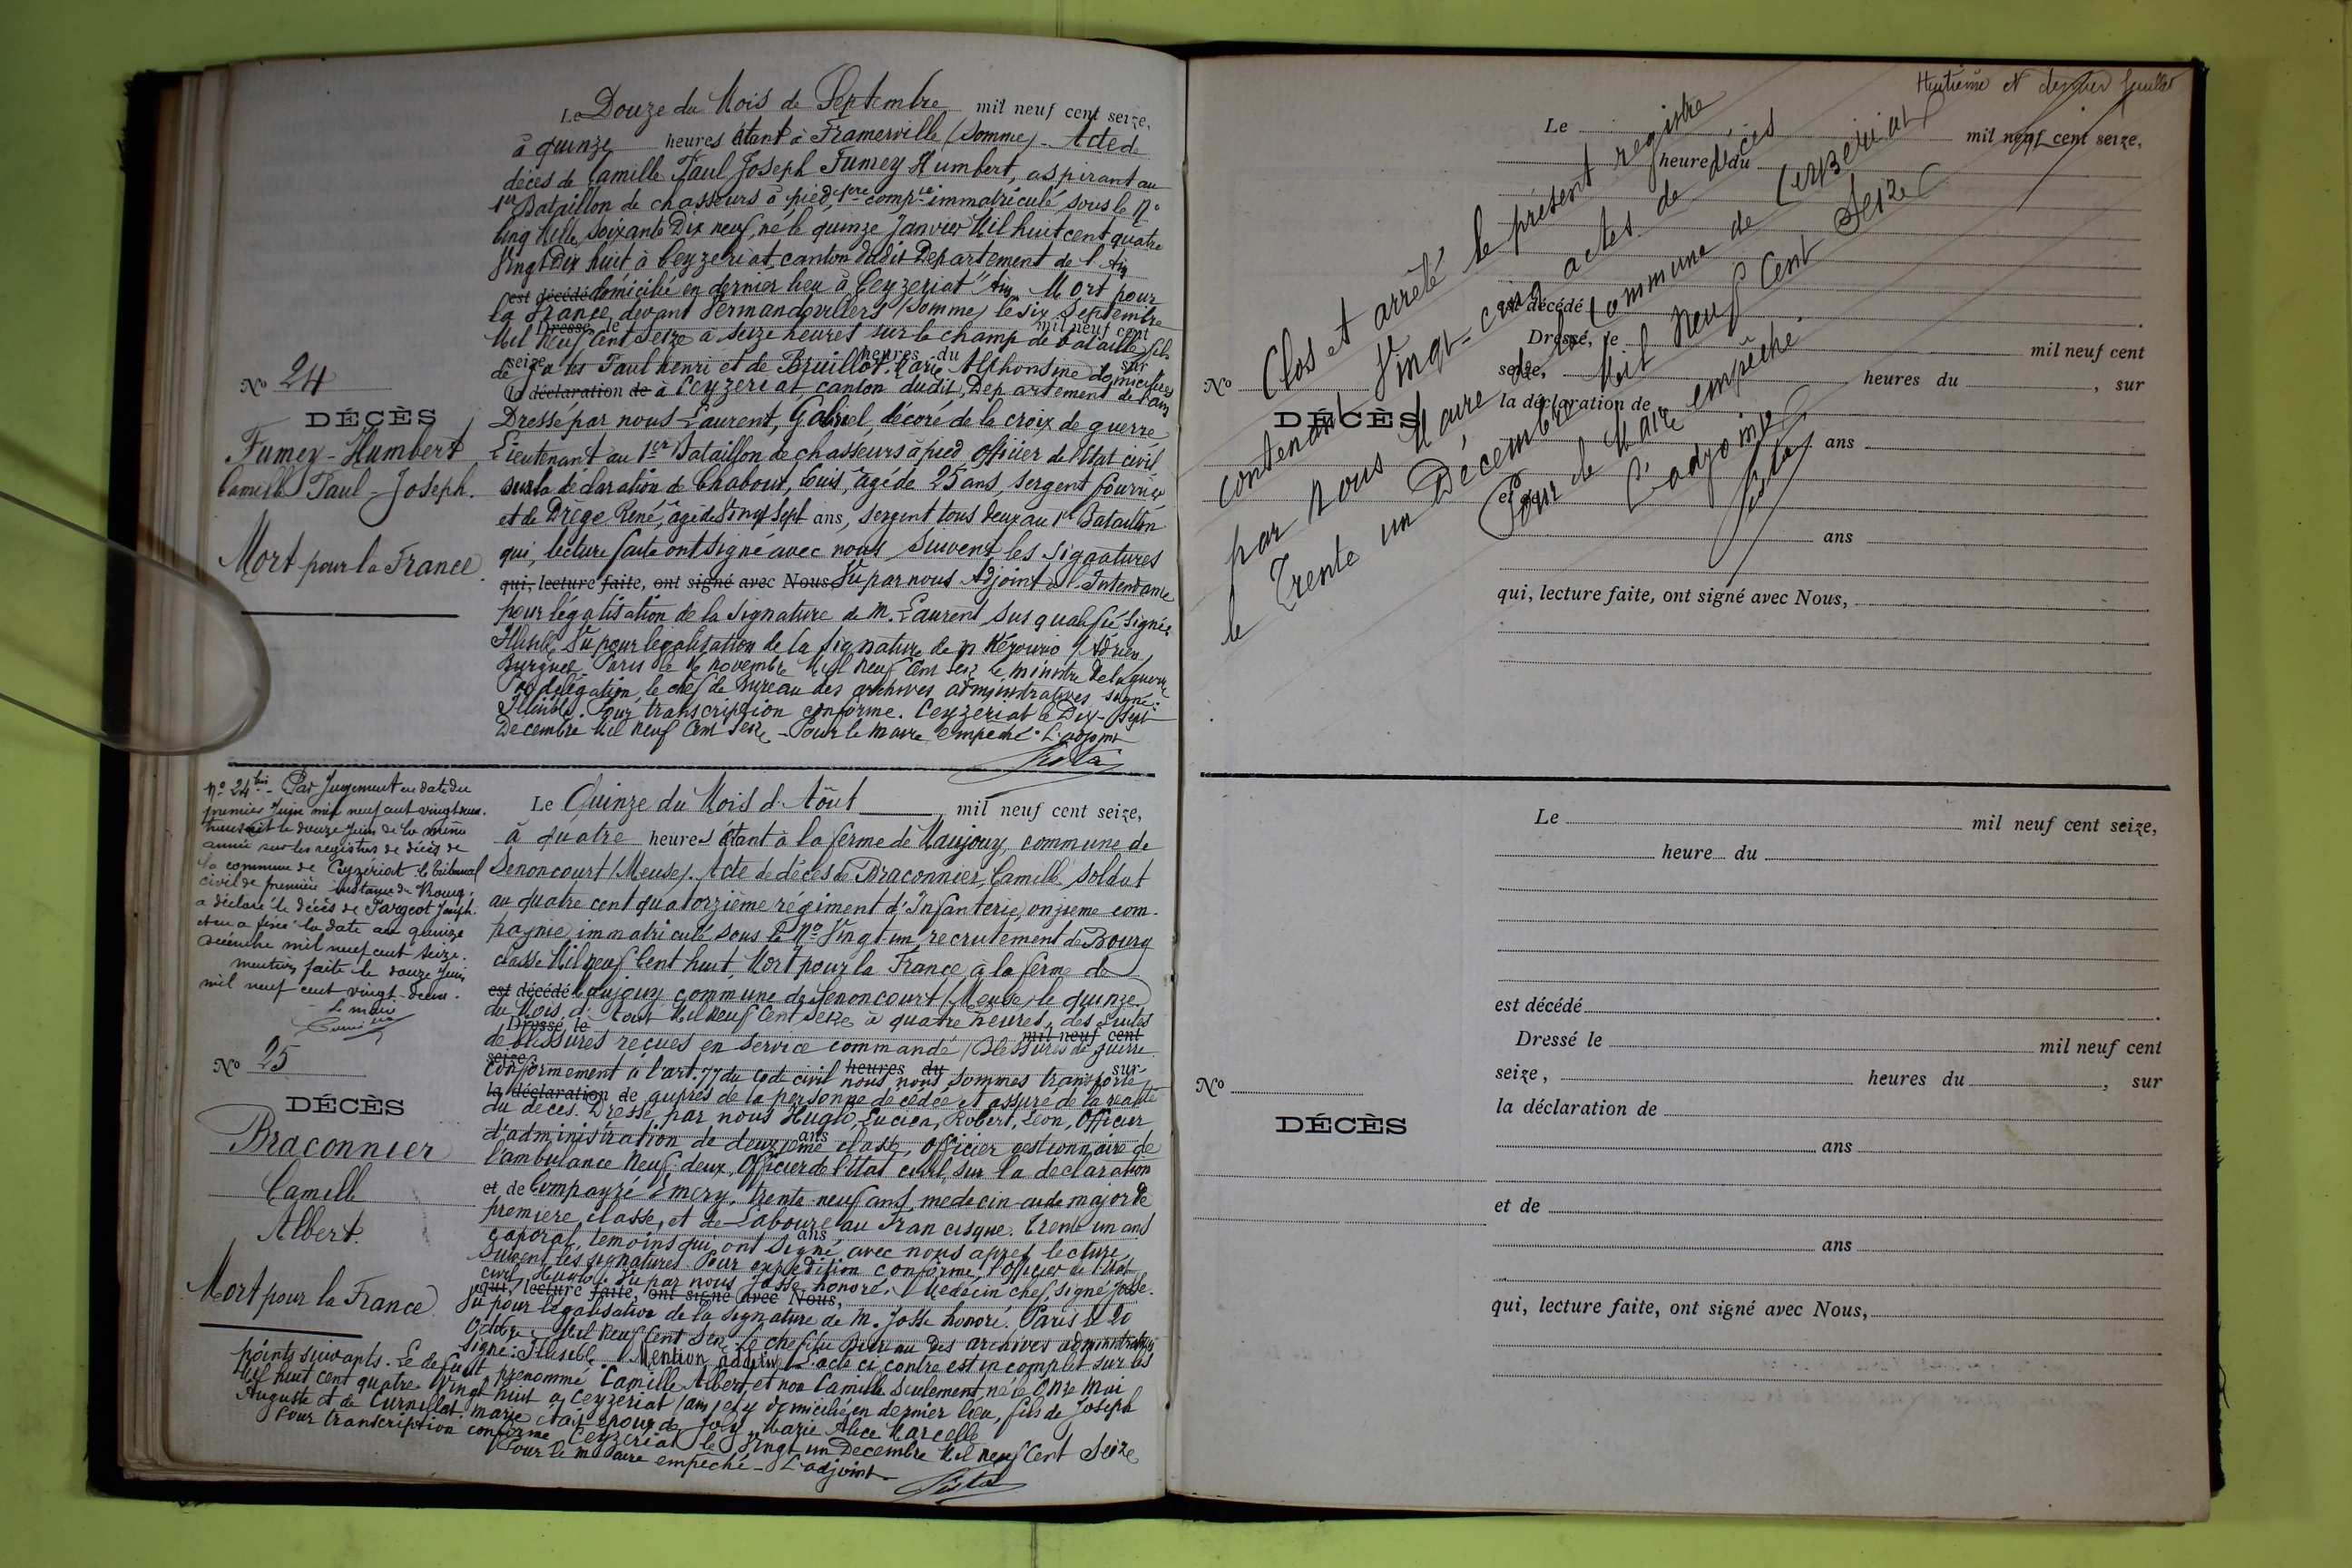 Le Douze du Mois de Septembre mil neuf cent seize,
à quinze heures étant à Framerville (Somme) - Acte de
décès de Camille Paul Joseph Fumey Humbert, aspirant au
1er Bataillon de chasseurs à pied, 1ere compie immatriculé sous le No
Cinq Mille soixante Dix neuf, né le quinze Janvier Mil huit cent quatre
Vingt Dix huit à Ceyzeriat canton dudit Departement de l'Ain
est décédé domicilié en dernier lieu à Ceyzeriat Ain Mort pour
la France devant Vermandovillers (Somme) le six Septembre
Dressé, le mil neuf cent
Mil Neuf Cent Seize à seize heures sur le champ de bataille, fils
seize, heures du sur
de Paul henri et de Bruillot Marie Alphonsine domiciliés
la déclaration de à Ceyzeriat canton dudit, Departement de l'ain
Dressé par nous Laurent, Gabriel, décoré de la croix de guerre
Lieutenant au 1er Bataillon de chasseurs à pied Officier de l'Etat civil
sur la déclaration de Chabout, Louis, âgé de 25 ans, sergent fourrier
et de Drege René, âgé de Vingt Sept ans, sergent tous deux au 1er Bataillon
qui, lecture faite ont signé avec nous Suivent les signatures
qui, lecture faite, ont signé avec Nous Vu par nous Adjoint à l'Intendance
pour légalisation de la signature de M. Laurent sus qualifié signé:
Illisible Vu pour légalisation de la signature de M Kérourio Adrien
Paris le 16 novembre Mil neuf Cent Seiz le ministre de la guerre
Par délégation, le chef de Bureau des archives administratives signé:
Illisible. Pour transcription conforme. Ceyzeriat le Dix-Sept
Decembre Mil neuf Cent Seize - Pour le maire empeché L'adjoint
No 24
DÉCÈS
Fumey-Humbert
Camille Paul-Joseph.
Mort pour la France.
No 24 bis - Par Jugement en date du
premier Juin mil neuf cent vingt deux.
transcrit le douze Juin de la même
année sur les registres de décès de
la commune de Ceyzériat le tribunal
civil de première instance de Bourg.
a déclaré le décès de Pargeot Joseph.
et en a fixé la date au quinze
décembre mil neuf cent seize.
mention faite le douze Juin
mil neuf cent vingt-deux.
Le maire
Le Quinze du Mois d'Août mil neuf cent seize,
à quatre heures étant à la ferme de Maujouy, commune de
Senoncourt (Meuse). Acte de décès de Braconnier, Camille soldat
au quatre cent quatorzième régiment d'Infanterie, onzieme com-
pagnie, immatriculé sous le No Vingt-un, recrutement de Bourg
classe Mil neuf Cent huit Mort pour la France, à la ferme de
est décédé Maujouy commune de Senoncourt (Meuse) le quinze
du Mois d'août Mil Neuf Cent Seize à quatre heures, des suites
Dressé, le mil neuf cent
de blessures reçues en service commandé (Blessures de guerre
seize, heures du sur
Conformement à l'art. 77 du code civil nous nous sommes transporté
la déclaration de auprès de la personne décédée et assuré de la réalité
du décès. Dressé par nous Huglo, Lucien, Robert, Léon, Officier
ans
d'administration de deuxième classe, officier gestionnaire de
l'ambulance Neuf-deux, Officier de l'Etat civil, sur la déclaration
et de Compayré Emery, trente-neuf ans, medecin-aide major de
premiere classe, et de Laboureau Francisque. trente un ans
ans
caporal, témoins qui ont signé, avec nous après lecture
suivent les signatures Pour expédition conforme, l'officier de l'Etat
civil, Huglo. Vu par nous Josse honoré, Médecin chef, signé Josse.
qui, lecture faite, ont signé avec Nous,
Vu pour légalisation de la signature de M. Josse honoré. Paris le 20
Octobre Mil neuf Cent Seize Le chef du Bureau des archives administratives
signé: Illisible. Mention additive L'acte ci contre est incomplet sur les
points suivants. Le defunt prenommé Camille Albert, et non Camille seulement, né le Onze Mai
Mil huit cent quatre Vingt huit à Ceyzeriat (ain) et y domicilié en dernier lieu, fils de Joseph
Auguste et de Curnillat, marie était époux de Joly Marie Alice Marcelle
Pour transcription conforme Ceyzeriat le Vingt un Decembre Mil neuf Cent Seize
Pour le maire empêché - L'adjoint
No 25
DÉCÈS
Braconnier
Camille
Albert.
Mort pour la France
Huitième et dernier feuillet
Le mil neuf cent seize,
heure du
est décédé
Dressé, le mil neuf cent
seize, heures du , sur
la déclaration de
ans
et de
ans
qui, lecture faite, ont signé avec Nous,
No
DÉCÈS
Clos et arrêté le présent registre
contenant Vingt-cinq actes de décès
par nous Maire de la Commune de Ceyzeriat
le Trente un Décembre Mil Neuf Cent Seize
Pour le Maire empêché.
L'adjoint
Le mil neuf cent seize,
heure du
est décédé
Dressé le mil neuf cent
seize, heures du , sur
la déclaration de
ans
et de
ans
qui, lecture faite, ont signé avec Nous,
No
DÉCÈS